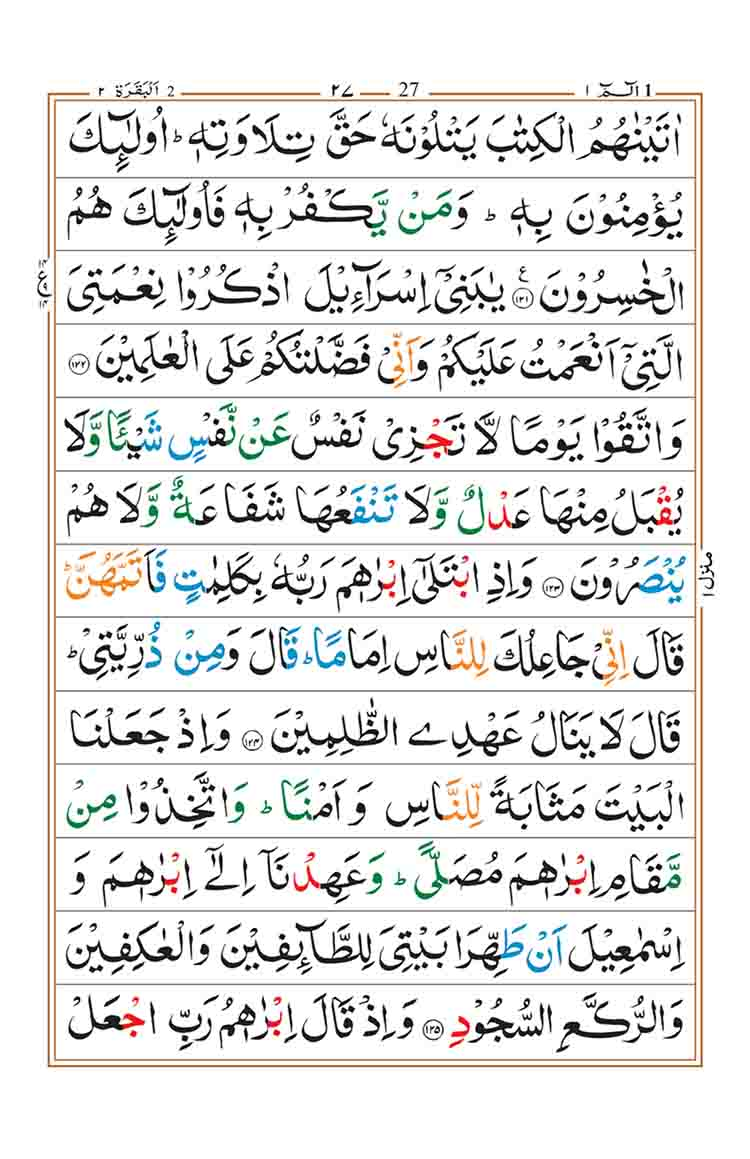 2 اَلْبَقَرَة ٢ ٢٧ 27 1 الٓمّٓ ١
اٰتَيْنٰهُمُ الْكِتٰبَ يَتْلُوْنَهٗ حَقَّ تِلَاوَتِهٖ ؕ اُولٰٓئِكَ
يُؤْمِنُوْنَ بِهٖ ؕ وَمَنْ يَّكْفُرْ بِهٖ فَاُولٰٓئِكَ هُمُ
الْخٰسِرُوْنَ ۧ‏ ١٢١ يٰبَنِىْٓ اِسْرَآءِيْلَ اذْكُرُوْا نِعْمَتِىَ
ع ١٤ ٩ ١٤
الَّتِىْٓ اَنْعَمْتُ عَلَيْكُمْ وَاَنِّىْ فَضَّلْتُكُمْ عَلَى الْعٰلَمِيْنَ ١٢٢
وَاتَّقُوْا يَوْمًا لَّا تَجْزِىْ نَفْسٌ عَنْ نَّفْسٍ شَيْـًٔا وَّلَا
يُقْبَلُ مِنْهَا عَدْلٌ وَّلَا تَنْفَعُهَا شَفَاعَةٌ وَّلَا هُمْ
يُنْصَرُوْنَ ١٢٣ وَاِذِ ابْتَلٰٓى اِبْرٰهٖمَ رَبُّهٗ بِكَلِمٰتٍ فَاَتَمَّهُنَّ ؕ
منزل ١
قَالَ اِنِّىْ جَاعِلُكَ لِلنَّاسِ اِمَامًا ؕ قَالَ وَمِنْ ذُرِّيَّتِىْ ؕ
قَالَ لَا يَنَالُ عَهْدِى الظّٰلِمِيْنَ ١٢٤ وَاِذْ جَعَلْنَا
الْبَيْتَ مَثَابَةً لِّلنَّاسِ وَاَمْنًا ؕ وَاتَّخِذُوْا مِنْ
مَّقَامِ اِبْرٰهٖمَ مُصَلًّى ؕ وَعَهِدْنَآ اِلٰٓى اِبْرٰهٖمَ وَ
اِسْمٰعِيْلَ اَنْ طَهِّرَا بَيْتِىَ لِلطَّآئِفِيْنَ وَالْعٰكِفِيْنَ
وَالرُّكَّعِ السُّجُوْدِ ١٢٥ وَاِذْ قَالَ اِبْرٰهٖمُ رَبِّ اجْعَلْ